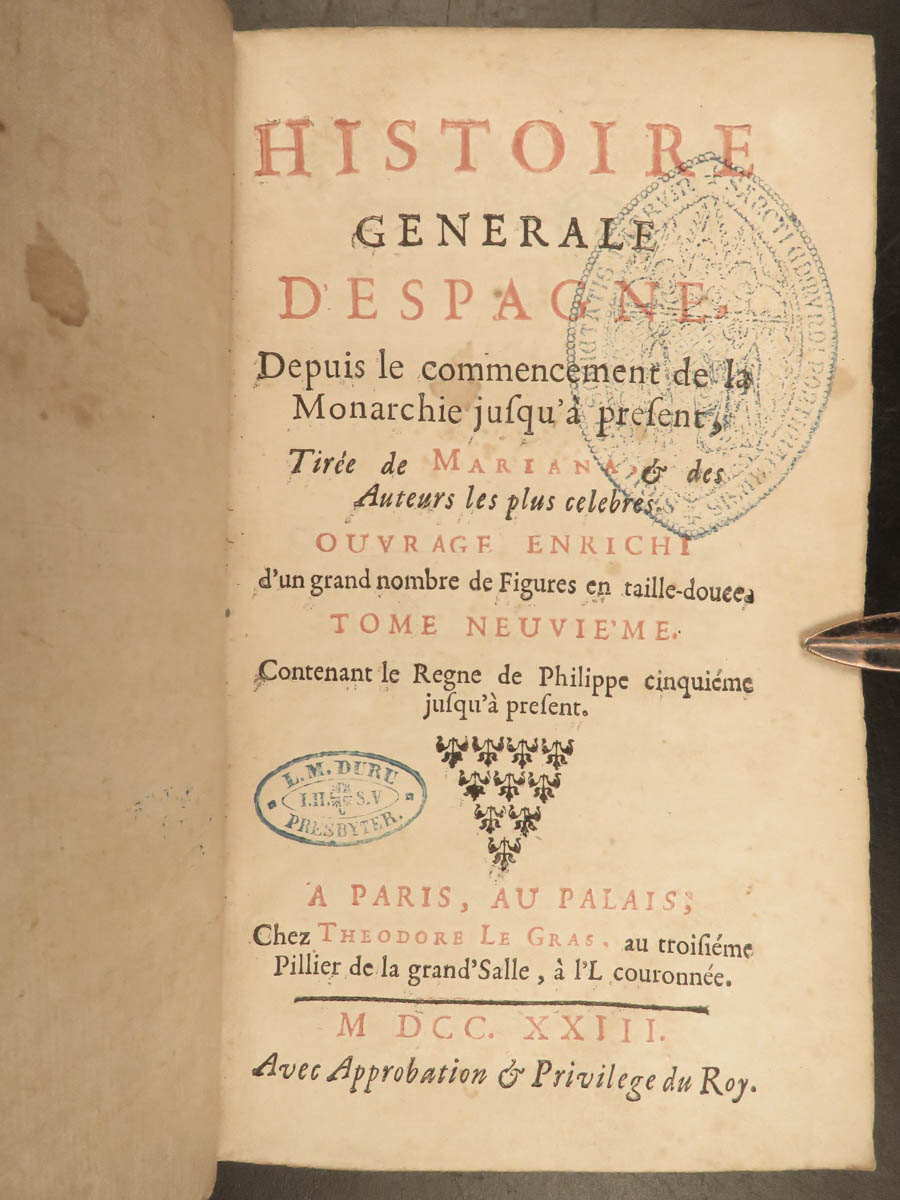 HISTOIRE
GENERALE
D'ESPAGNE.
Depuis le commencement de la
Monarchie juſqu'à preſent,
Tirée de MARIANA, & des
Auteurs les plus celebres.
OUVRAGE ENRICHI
d'un grand nombre de Figures en taille-douce.
TOME NEUVIE'ME.
Contenant le Regne de Philippe cinquiéme
juſqu'à preſent.
L. M. DURU
I.H. S.V
PRESBYTER.
A PARIS, AU PALAIS;
Chez THEODORE LE GRAS, au troiſiéme
Pillier de la grand'Salle, à l'L couronnée.
M DCC. XXIII.
Avec Approbation & Privilege du Roy.